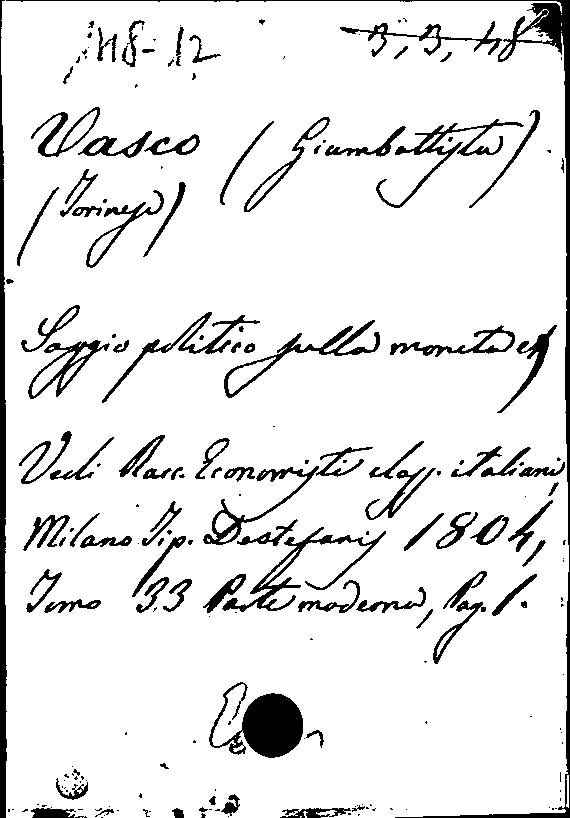 148-12 3, 3, 48
Vasco (Giambattista)
(Torinese)
Saggio politico sulla moneta
Vedi Racc. Economisti class. italiani,
Milano Tip. Destefanis 1804,
Tomo 33 Parte moderna, Pag. 1.